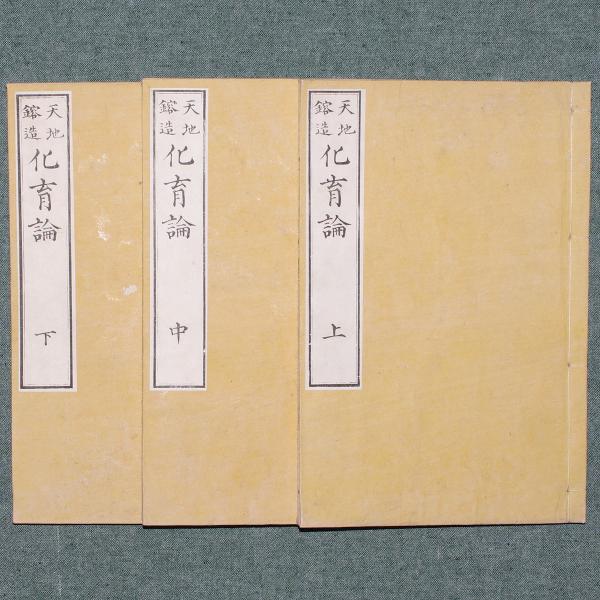 天地
鎔造
化育論
上
天地
鎔造
化育論
中
天地
鎔造
化育論
下